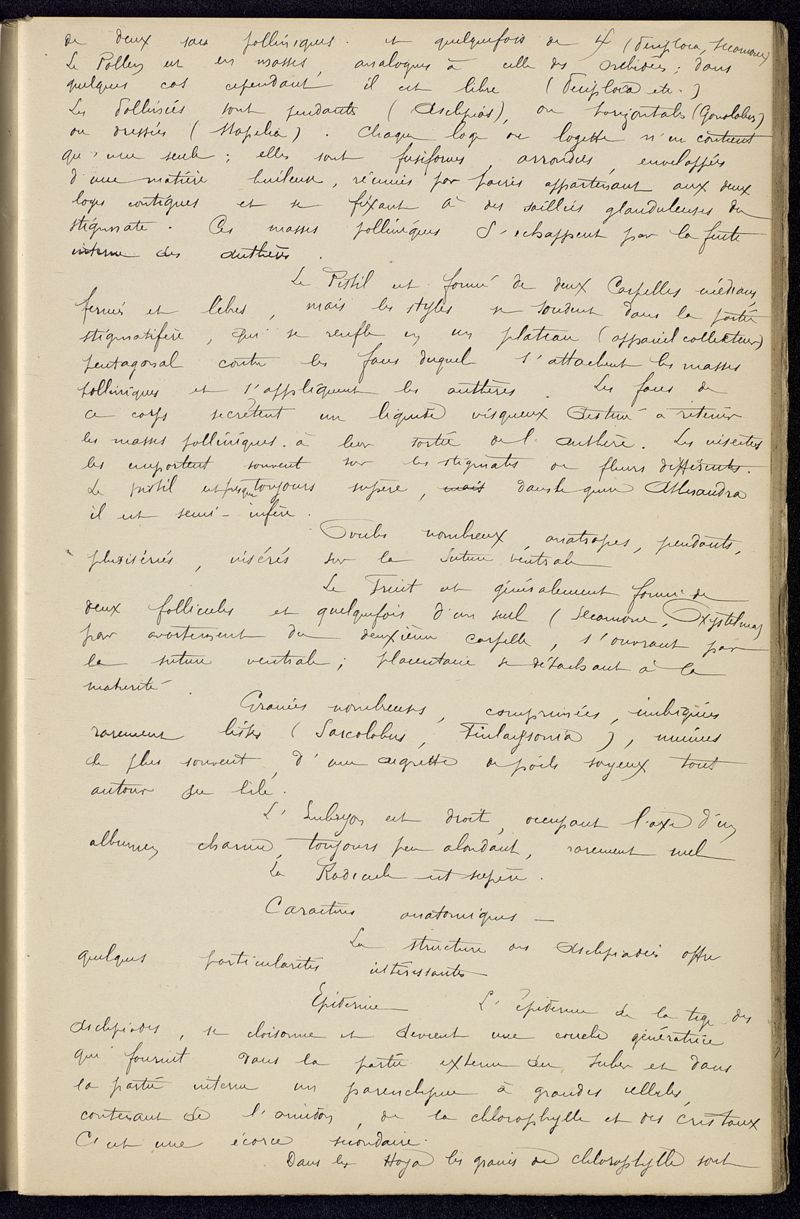 de deux sacs polliniques. et quelquefois de 4 (Periploca, Secamone)
Le Pollen est en masses, analogues à celle des Orchidées ; dans
quelques cas cependant, il est libre (Periploca etc.)
Les Pollinies sont pendantes (Asclepias), ou horizontales (Gonolobus)
ou dressées (Stapelia). Chaque loge ou logette n'en contient
qu'une seule ; elles sont fusiformes, arrondies, enveloppées
d'une matière huileuse, réunies par paires appartenant aux deux
loges contigues et se fixant à des saillies glanduleuses du
stigmate. Ces masses polliniques s'echappent par la fente
interne des anthères.
Le Pistil est formé de deux Carpelles médians,
fermés et libres, mais les styles se soudent dans la partie
stigmatifère, qui se renfle en un plateau (appareil collecteur)
pentagonal contre les faces duquel s'attachent les masses
polliniques et s'appliquent les anthères. Les faces de
ce corps secrètent un liquide visqueux destiné à retenir
les masses polliniques. à leur sortie de l'anthère. Les insectes
les emportent souvent sur les stigmates de fleurs différentes.
Le pistil est presque toujours supère, mais dans le genre
il est semi-infère.
Ovules nombreux, anatropes, pendants,
plurisériés, insérés sur la suture ventrale
Le Fruit est généralement formé de
deux follicules et quelquefois d'un seul (Secamone, Oxystelma)
par avortement du deuxième carpelle, s'ouvrant par
la suture ventrale ; placentaire se détachant à la
maturité.
Graines nombreuses, comprimées, imbriquées
rarement lisses (Sarcolobus, Finlaysonia), munies
le plus souvent, d'une aigrette de poils soyeux tout
autour du hile.
L'Embryon est droit, occupant l'axe d'un
albumen charnu, toujours peu abondant, rarement nul
La Radicule est supère.
Caractères anatomiques —
La structure des Asclepiadées offre
quelques particularités intéressantes
Epiderme L'épiderme de la tige des
Asclepiades, se cloisonne et devient une couche génératrice
qui fournit dans la partie externe du suber et dans
la partie interne un parenchyme à grandes cellules,
contenant de l'amidon, de la chlorophylle et des cristaux
C'est une écorce secondaire.
Dans les Hoya les grains de chlorophylle sont